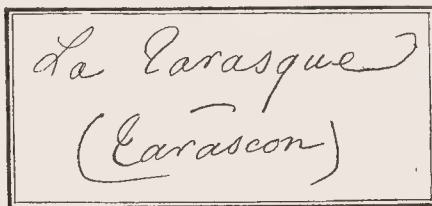 La Tarasque
(Tarascon)